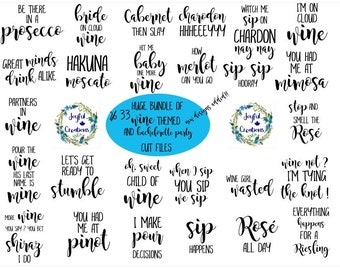 BE THERE
IN A
prosecco
bride
ON CLOUD
wine
Cabernet
THEN SLAY
chardon
HHHEEEYYY
WATCH ME
sip ON
CHARDON
nay nay
I'M ON
CLOUD
wine
GREAT minds
DRINK ALIKE
HAKUNA
moscato
HIT ME
baby
ONE MORE
wine
HOW
merlot
CAN YOU GO
sip sip
HOORAY
YOU HAD
ME AT
mimosa
PARTNERS
IN
wine
Joyful
Creations
HUGE BUNDLE OF
33 wine THEMED
AND bachelorette party
CUT FILES
new designs added!!
Joyful
Creations
STOP AND
SMELL THE
Rosé
POUR THE
wine HIS
LAST NAME IS
mine
LET'S GET
READY TO
stumble
oh, sweet
CHILD OF
wine
when I sip
YOU SIP
we sip
WINE GIRL
wasted
wine not?
I'M TYING
the knot!
MORE wine
YOU SPY? YOU BET
shiraz
I DO
YOU HAD
ME AT
pinot
I MAKE
pour
DECISIONS
sip
HAPPENS
Rosé
ALL DAY
EVERYTHING
happens
FOR A
Riesling